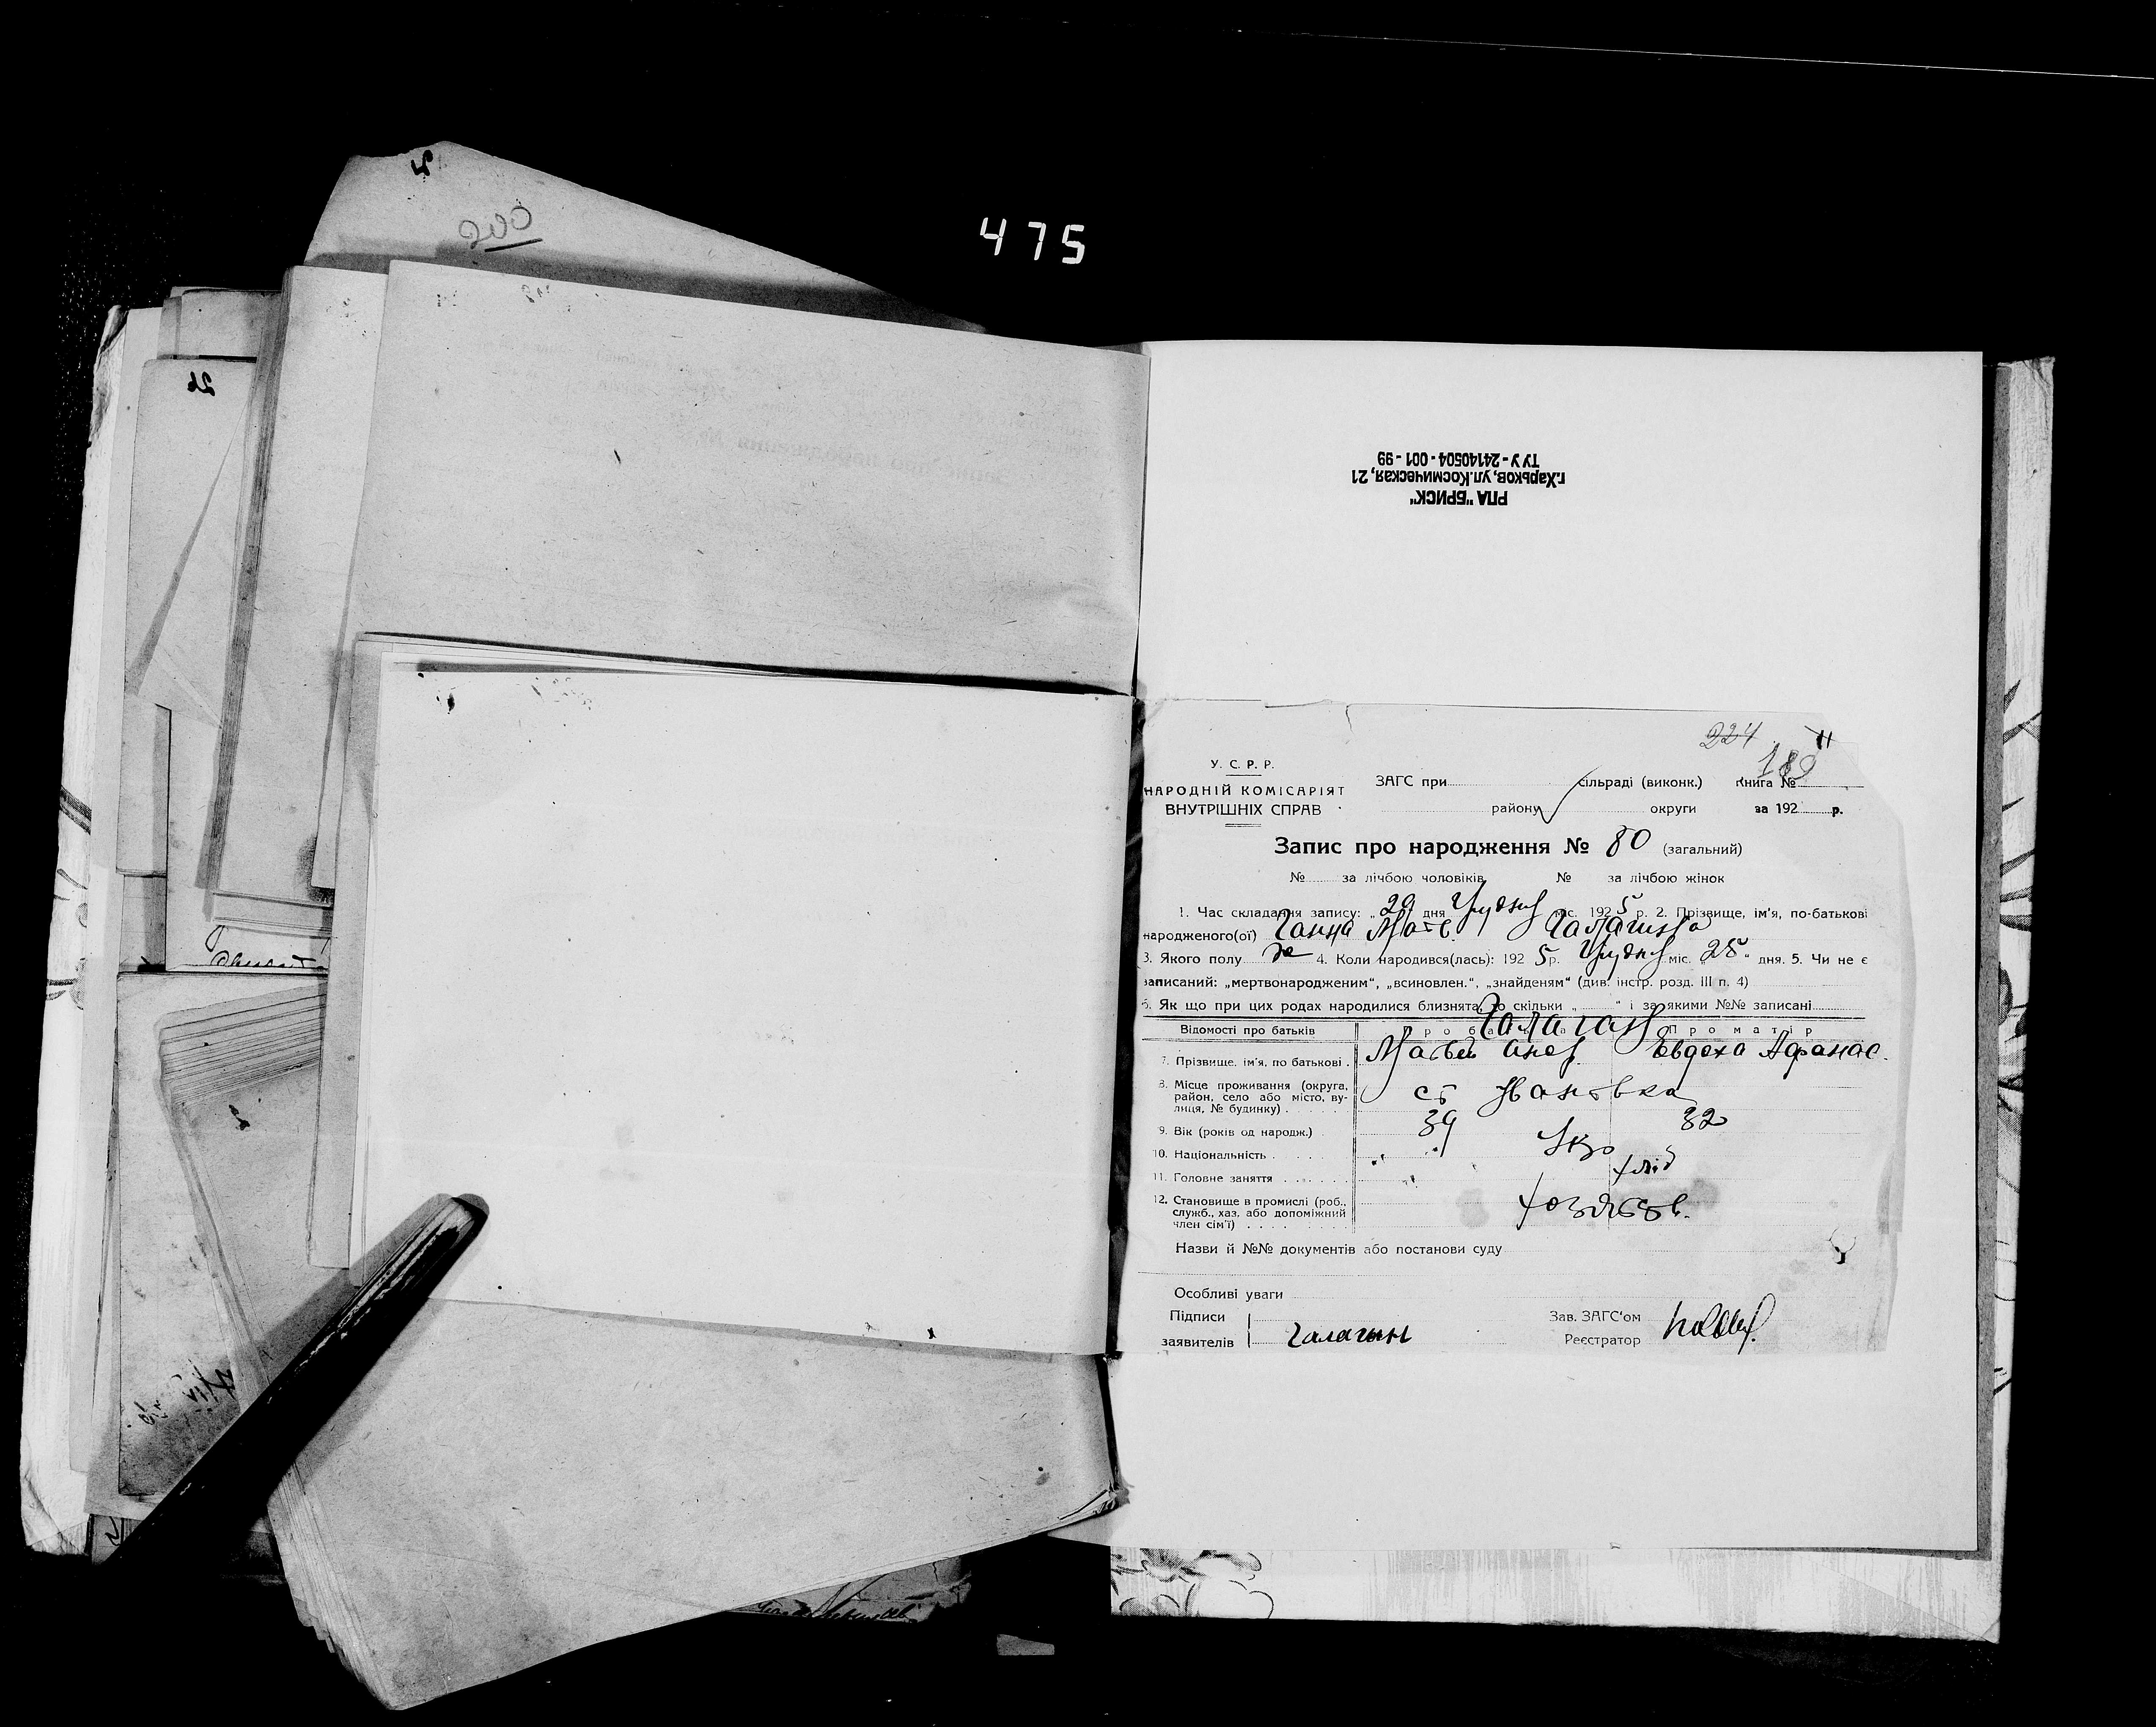 200
475
РПА "БРИСК"
г.Харьков, ул.Космическая, 21
ТУ У - 24140504 - 001 - 99
224
189
У. С. Р. Р.
НАРОДНІЙ КОМІСАРІЯТ
ВНУТРІШНІХ СПРАВ
ЗАГС при сільраді (виконк.) Книга №
району округи за 192 р.
Запис про народження № 80 (загальний)
№ за лічбою чоловіків № за лічбою жінок
1. Час складання запису: „29 дня Грудня міс. 1925 р. 2. Прізвище, ім'я, по-батькові
народженого(ої) Ганна Матв.
3. Якого полу ж 4. Коли народився(лась): 1925 р. Грудня міс. „28" дня. 5. Чи не є
записаний: „мертвонародженим", „всиновлен.", „знайденям" (див. інстр. розд. III п. 4)
6. Як що при цих родах народилися близнята, то скільки „ " і за якими №№ записані
Галаган
Відомості про батьків Про батька Про матір
7. Прізвище, ім'я, по батькові . Матвей Евдоха Афанас.
8. Місце проживання (округа, район, село або місто, вулиця, № будинку) . . . . . с. Ивановка
9. Вік (років од народж.) 39 32
10. Національність . . . . Укр
11. Головне заняття . . . . . . хліб
12. Становище в промислі (роб., служб., хаз. або допоміжний член сім'ї) . . . . . . .
Назви й №№ документів або постанови суду
Особливі уваги
Підписи
заявителів Галаган
Зав. ЗАГС'ом
Реєстратор